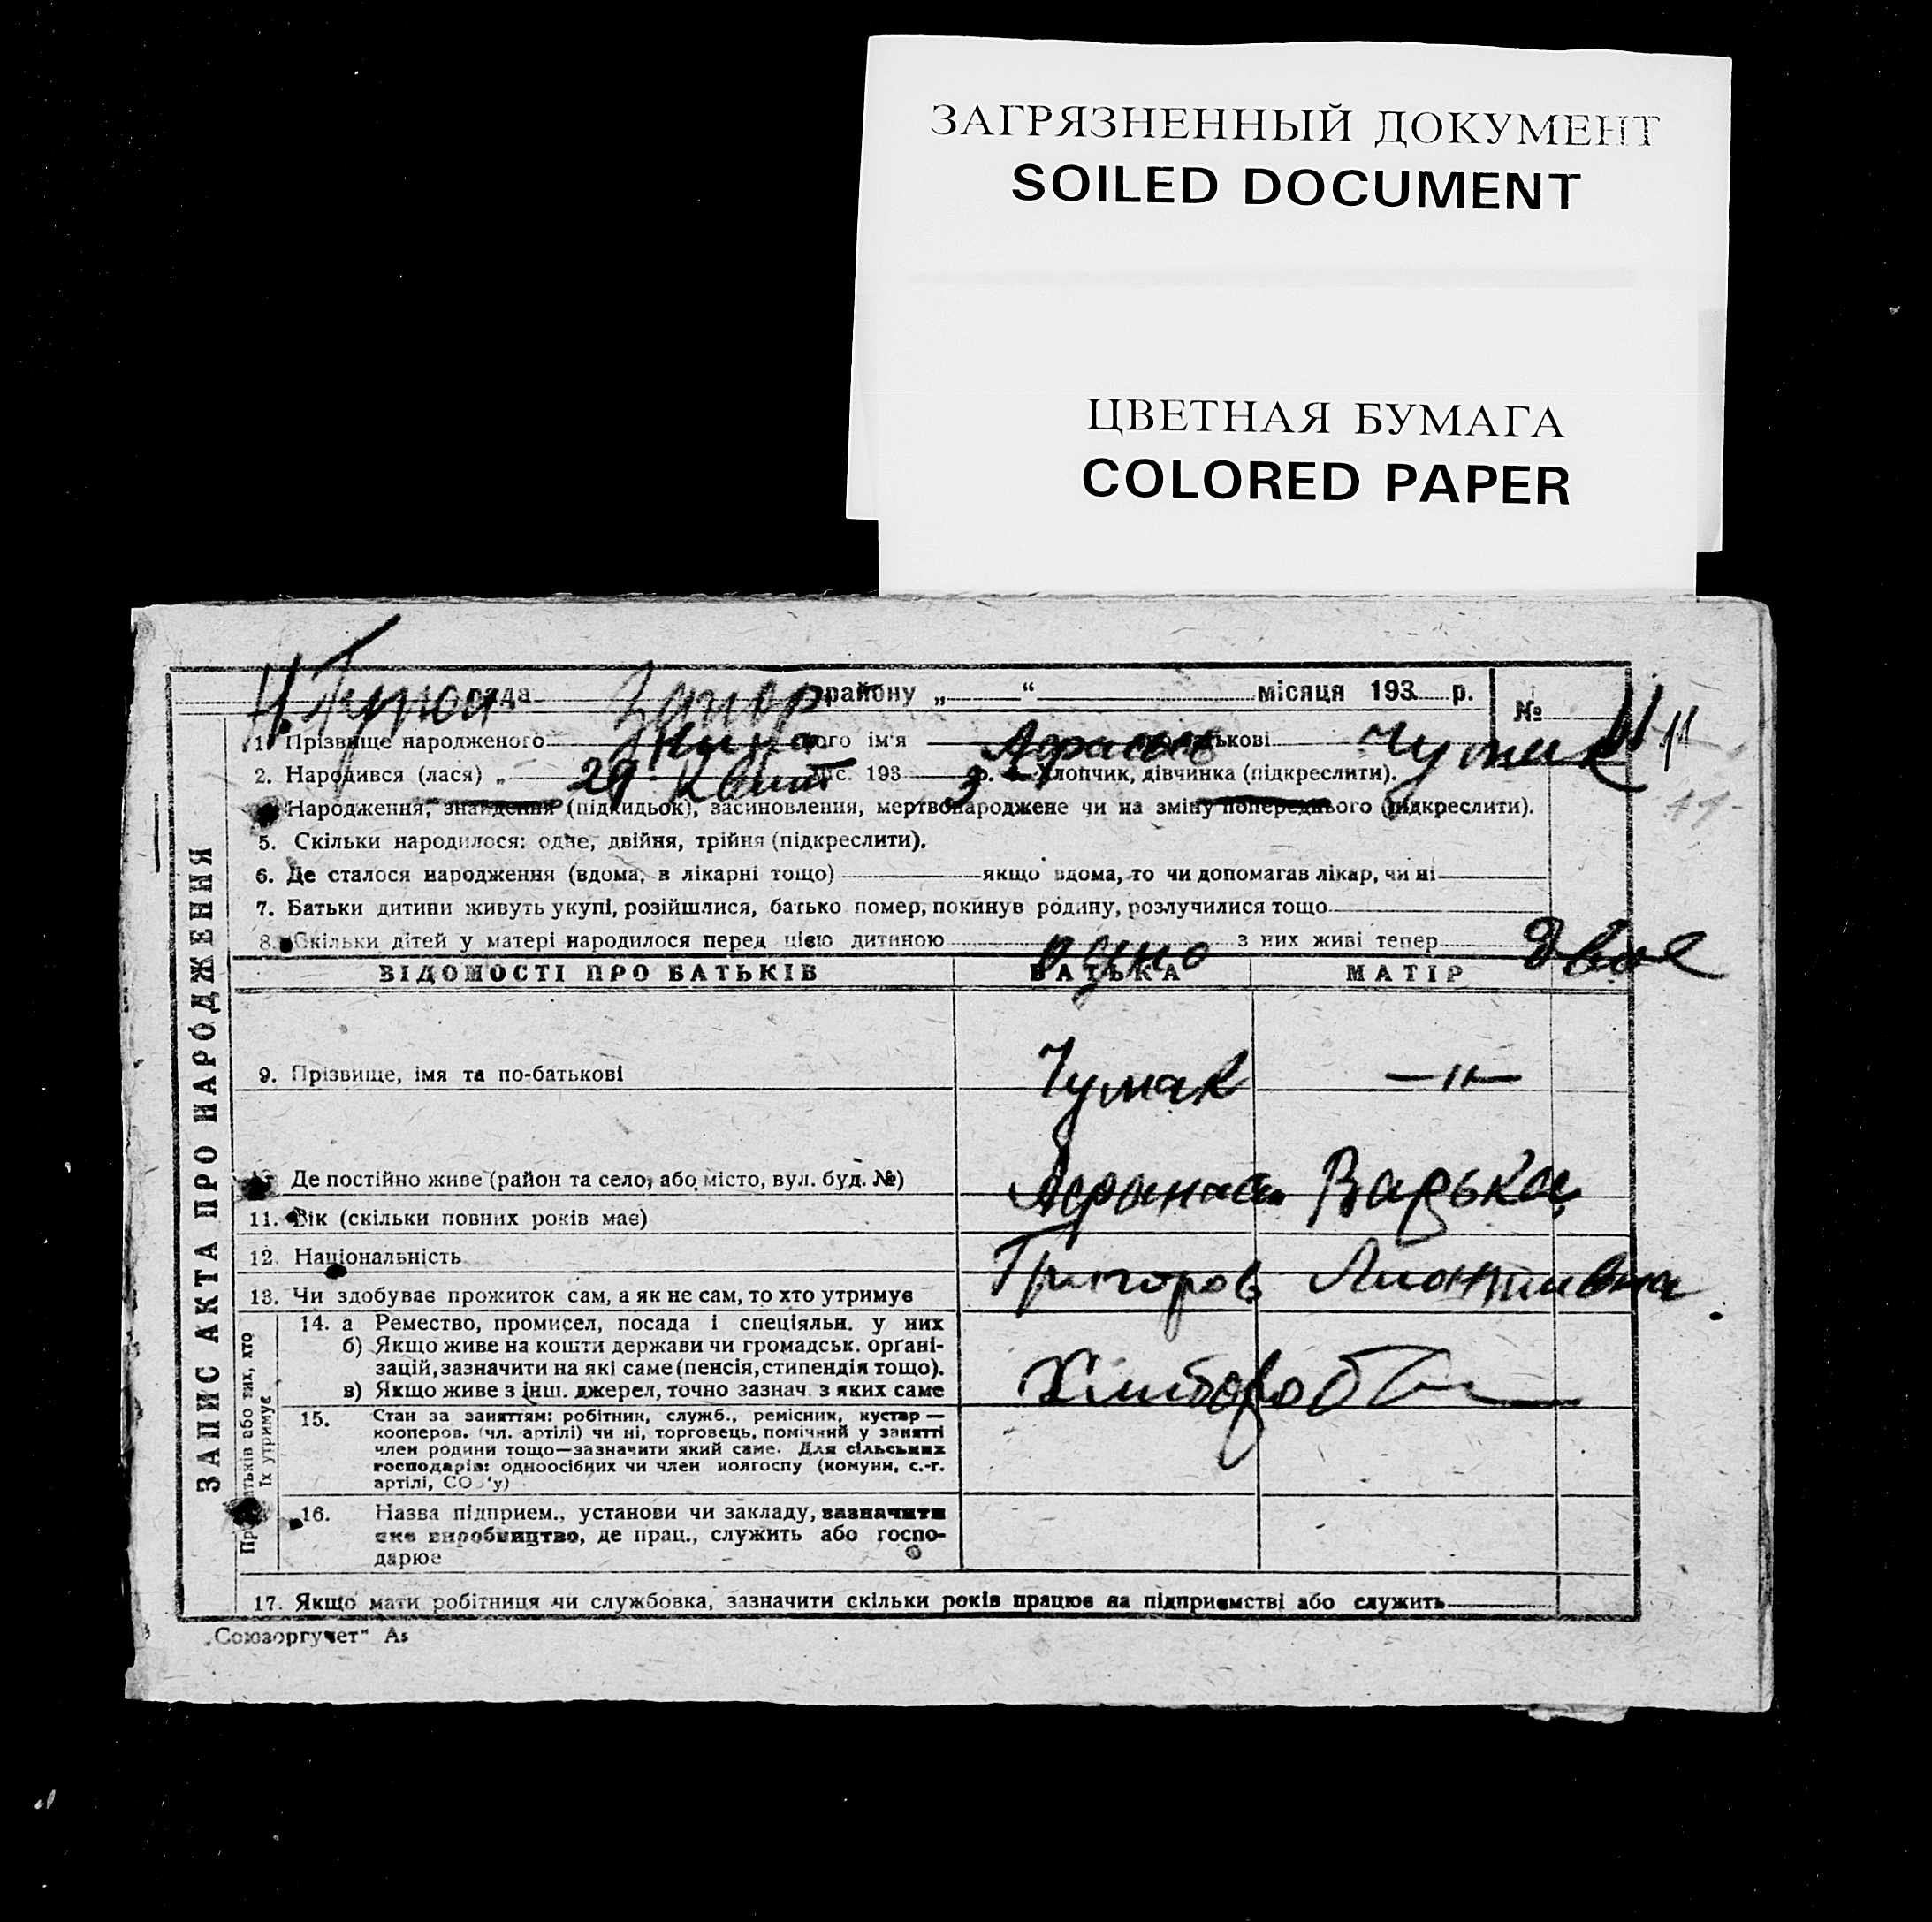 ЗАГРЯЗНЕННЫЙ ДОКУМЕНТ
SOILED DOCUMENT
ЦВЕТНАЯ БУМАГА
COLORED PAPER
рада Запор району „ “ місяця 193 р. № 11
1. Прізвище народженого ого ім'я по-батькові Чумак 11
2. Народився (лася) „ 29 Квіт міс. 193 р. — Хлопчик, дівчинка (підкреслити).
Народження, знайдення (підкидьок), засиновлення, мертвонароджене чи на зміну попереднього (підкреслити). 11
5. Скільки народилося: одне, двійня, трійня (підкреслити).
6. Де сталося народження (вдома, в лікарні тощо) якщо вдома, то чи допомагав лікар, чи ні
7. Батьки дитини живуть укупі, розійшлися, батько помер, покинув родину, розлучилися тощо
8. Скільки дітей у матері народилося перед цією дитиною одно з них живі тепер двое
ЗАПИС АКТА ПРО НАРОДЖЕННЯ
ВІДОМОСТІ ПРО БАТЬКІВ БАТЬКА МАТІР
9. Прізвище, імя та по-батькові Чумак —"—
Де постійно живе (район та село, або місто, вул. буд. №) Варька
11. Вік (скільки повних років має)
12. Національність Григоров
13. Чи здобуває прожиток сам, а як не сам, то хто утримує
атьків або тих, хто
їх утримує
14. а Ремество, промисел, посада і спеціяльн. у них
б) Якщо живе на кошти держави чи громадськ. органі-
зацій, зазначити на які саме (пенсія, стипендія тощо).
в) Якщо живе з інш. джерел, точно зазнач. з яких саме
15. Стан за заняттям: робітник, служб., ремісник, кустар —
кооперов. (чл. артілі) чи ні, торговець, помічний у занятті
член родини тощо—зазначити який саме. Для сільських
господарів: одноосібних чи член колгоспу (комуни, с.-г.
артілі, СО 'у)
16. Назва підприєм., установи чи закладу, зазначити
яке виробництво, де прац., служить або госпо-
дарює
17. Якщо мати робітниця чи службовка, зазначити скільки років працює на підприємстві або служить
„Союзоргучет" А5